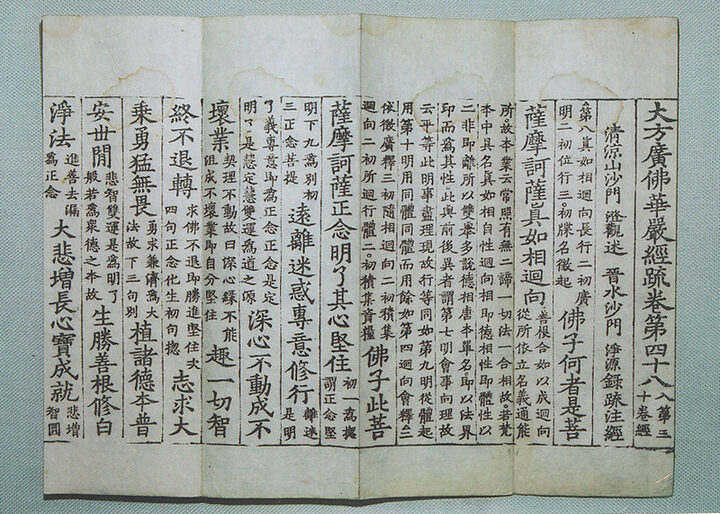 大方廣佛華嚴經疏卷第四十八 入第三十卷經
清涼山沙門 澄觀述 晉水沙門 淨源錄疏注經
第八真如相迴向長行二初廣明二初位行三初牒名徵起 佛子何者是菩
薩摩訶薩真如相迴向 善根合如以成迴向從所依立名義通能
所故本業云常照有無二諦一切法一合相故若梵
本中具名真如相自性迴向相即德相性即體性以
二非即離所以雙舉多說德相唐本單名即以法界
印而爲其性此與前後異者謂第七明會事向理故
云平等此明事盡理現故行等同如第九明從體起
用第十明用同體同體而用餘如第四迴向會釋二
依徵廣釋三初隨相迴向二初所迴行體二初積集資糧 佛子此菩
薩摩訶薩正念明了其心堅住 初一爲總謂正念堅
明下九爲別初三正念菩提 遠離迷惑專意修行 離迷是明
了義專意即爲正念正念是定明了是慧定慧雙運爲道之源 深心不動成不
壞業 契理不動故曰深心緣不能組成不壞業即自分堅住 趣一切智
終不退轉 求佛不退即勝進堅住次四句正念化生初句揔 志求大
乘勇猛無畏 勇求兼濟爲大法故下三句別 植諸德本普
安世閒 悲智雙運是爲明了般若爲衆德之本故 生勝善根修白
淨法 進善去偏爲正念 大悲增長心寶成就 悲增智圓